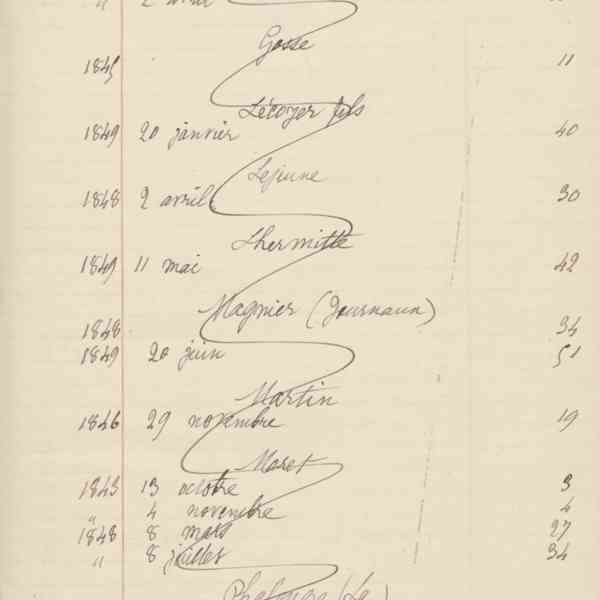 " 2 avril
Gosse
1845 11
Lécoyer fils
1849 20 janvier 40
Lejeune
1848 2 avril 30
Lhermitte
1849 11 mai 42
Magnier (Journaux)
1848 34
1849 20 juin 51
Martin
1846 29 novembre 19
Moret
1843 13 octobre 3
" 4 novembre 4
1848 8 mars 27
" 8 juillet 34
(Le)